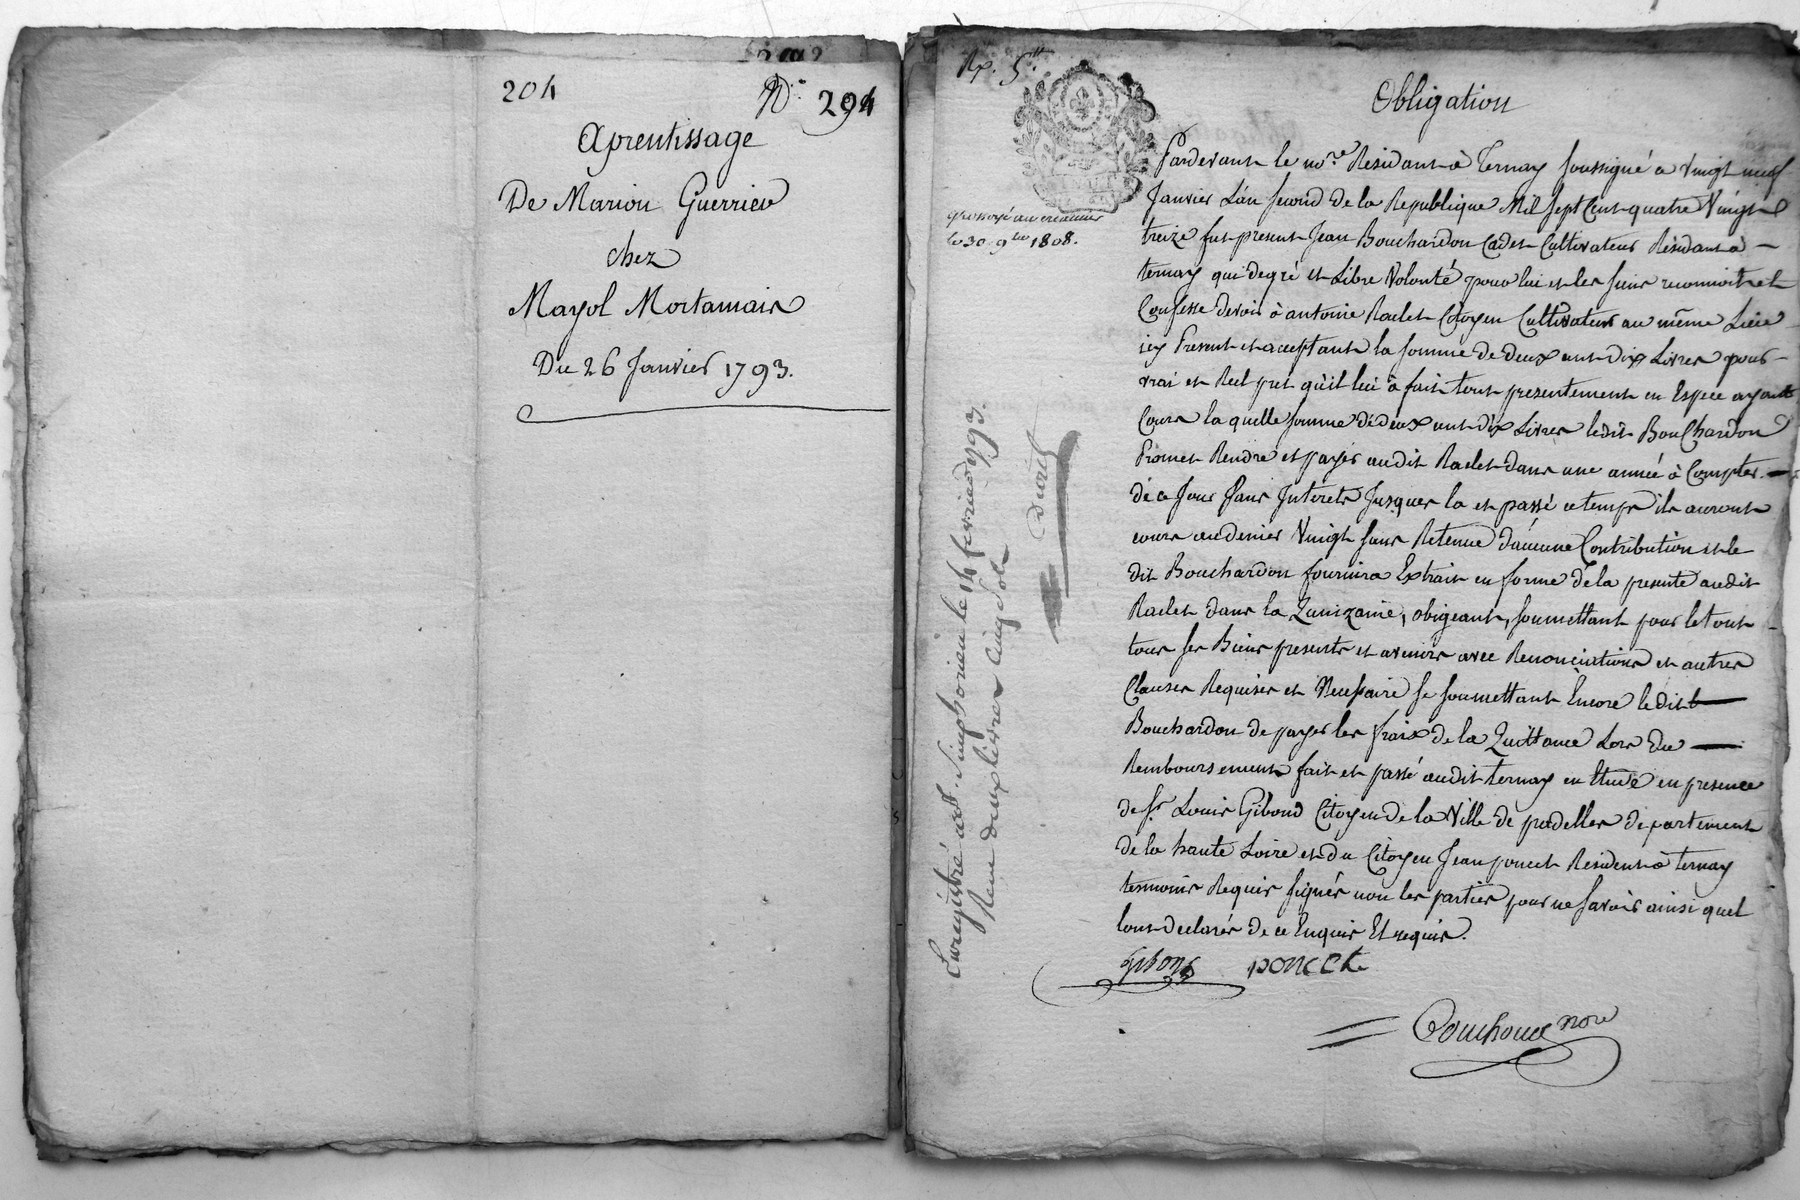 204
N° 294
Aprentissage
De Marion Guerrier
chez
Mayol Mortamais
Du 26 Janvier 1793.
Rp. 5#
Obligation
grossoyé au créancier
le 30 9bre 1808.
Pardevant le no.re Résidant à Ternay soussigné a vingt neuf
Janvier L'an second de la Republique Mil sept Cent quatre Vingt
treize fut present Jean Bouchardon Cadet Cultivateur Résidant à
ternay qui de gré et Libre Volonté pour lui et les siens reconnoit et
Confesse devoir à antoine Raclet Citoyen Cultivateur au même Lieu
icy Present et acceptant la somme de deux cent dix Livres pour
vrai et Reel pret qu'il lui à fait tout presentement en Espece ayant
Cours la quelle somme de deux cent dix Livres ledit BouChardon
Promet Rendre et payer audit Raclet dans une année à Compter
de ce Jour sans Interets Jusques la et passé ce temps ils auront
cours au denier Vingt sans Retenue d'aucune Contribution et le
dit Bouchardon fournira Extrait en forme de la presente audit
Raclet dans la Quinzaine, obigeant, soumettant pour le tout
tous ses Biens presents et avenirs avec Renonciations et autres
Clauses Requises et Necessaire se soumettant Encore ledit
Bouchardon de payer les fraix de la Quittance Lors du
Remboursement fait et passé audit ternay en Etude en presence
de Sr. Louis Gibond Citoyen de la Ville de pradelles departement
de la haute Loire et du Citoyen Jean poncet Resident à ternay
temoins Requis signés non les parties pour ne savoir ainsi quel
lont declarés de ce Enquis Et requis.
Gibond poncet
Couchoud nore
Enregistré à St. Simphorien le 14 fevrier 1793.
Reçu deux livres Cinq sols